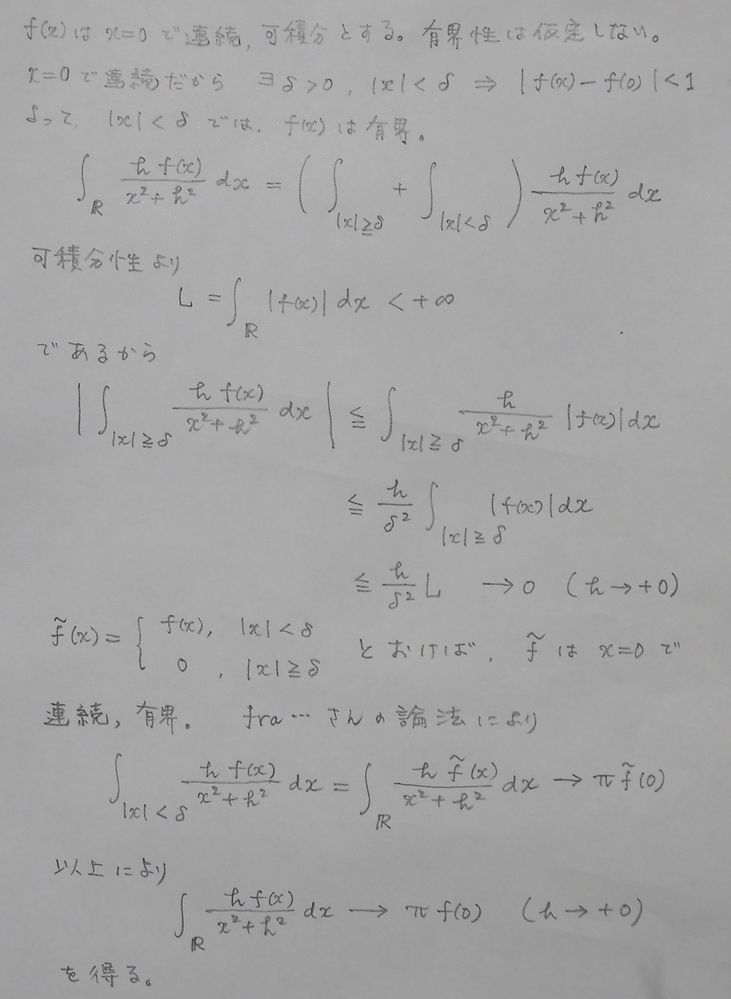 f(x) は x=0 で連続, 可積分とする。有界性は仮定しない。
x=0 で連続だから ∃δ>0, |x|<δ ⇒ |f(x)-f(0)|<1
よって, |x|<δ では, f(x) は有界。
∫_ℝ \frac{h f(x)}{x²+h²} dx = ( ∫_{|x|≧δ} + ∫_{|x|<δ} ) \frac{h f(x)}{x²+h²} dx
可積分性より
L = ∫_ℝ |f(x)| dx < +∞
であるから
| ∫_{|x|≧δ} \frac{h f(x)}{x²+h²} dx | ≦ ∫_{|x|≧δ} \frac{h}{x²+h²} |f(x)| dx
≦ \frac{h}{δ²} ∫_{|x|≧δ} |f(x)| dx
≦ \frac{h}{δ²} L → 0 (h→+0)
f̃(x) = { f(x), |x|<δ
0, |x|≧δ とおけば, f̃ は x=0 で
連続, 有界。 fra… さんの論法により
∫_{|x|<δ} \frac{h f(x)}{x²+h²} dx = ∫_ℝ \frac{h f̃(x)}{x²+h²} dx → π f̃(0)
以上により
∫_ℝ \frac{h f(x)}{x²+h²} dx → π f(0) (h→+0)
を得る。